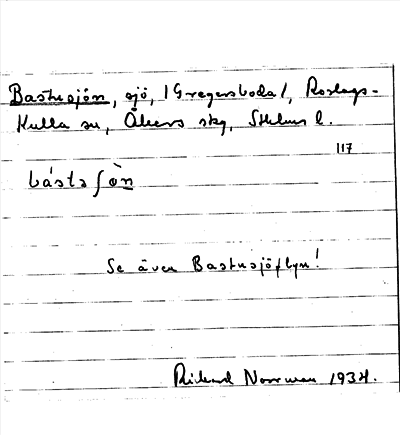 Bastusjön, sjö, /Gregersboda/, Roslags-
Kulla sn, Åkers skg, Sthlms l.
117
bástsʃòn
Se även Bastusjöflyn!
Rickard Norrman 1934.